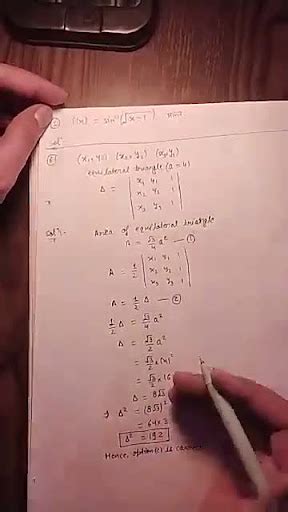 f(x) = sin⁻¹(√x-1)
Sol
(x₁, y₁) (x₂, y₂) (x₃, y₃)
equilateral triangle (a = 4)
Δ = | x₁ y₁ 1 |
| x₂ y₂ 1 |
| x₃ y₃ 1 |
Solⁿ:- Area of equilateral triangle
= √3/4 a² — ①
A = 1/2 | x₁ y₁ 1 |
| x₂ y₂ 1 |
| x₃ y₃ 1 |
A = 1/2 Δ — ②
1/2 Δ = √3/4 a²
Δ = √3/2 a²
= √3/2 × (4)²
= √3/2 × 16
Δ = 8√3
Δ² = (8√3)²
= 64×3
Δ² = 192
Hence, option(c) is correct